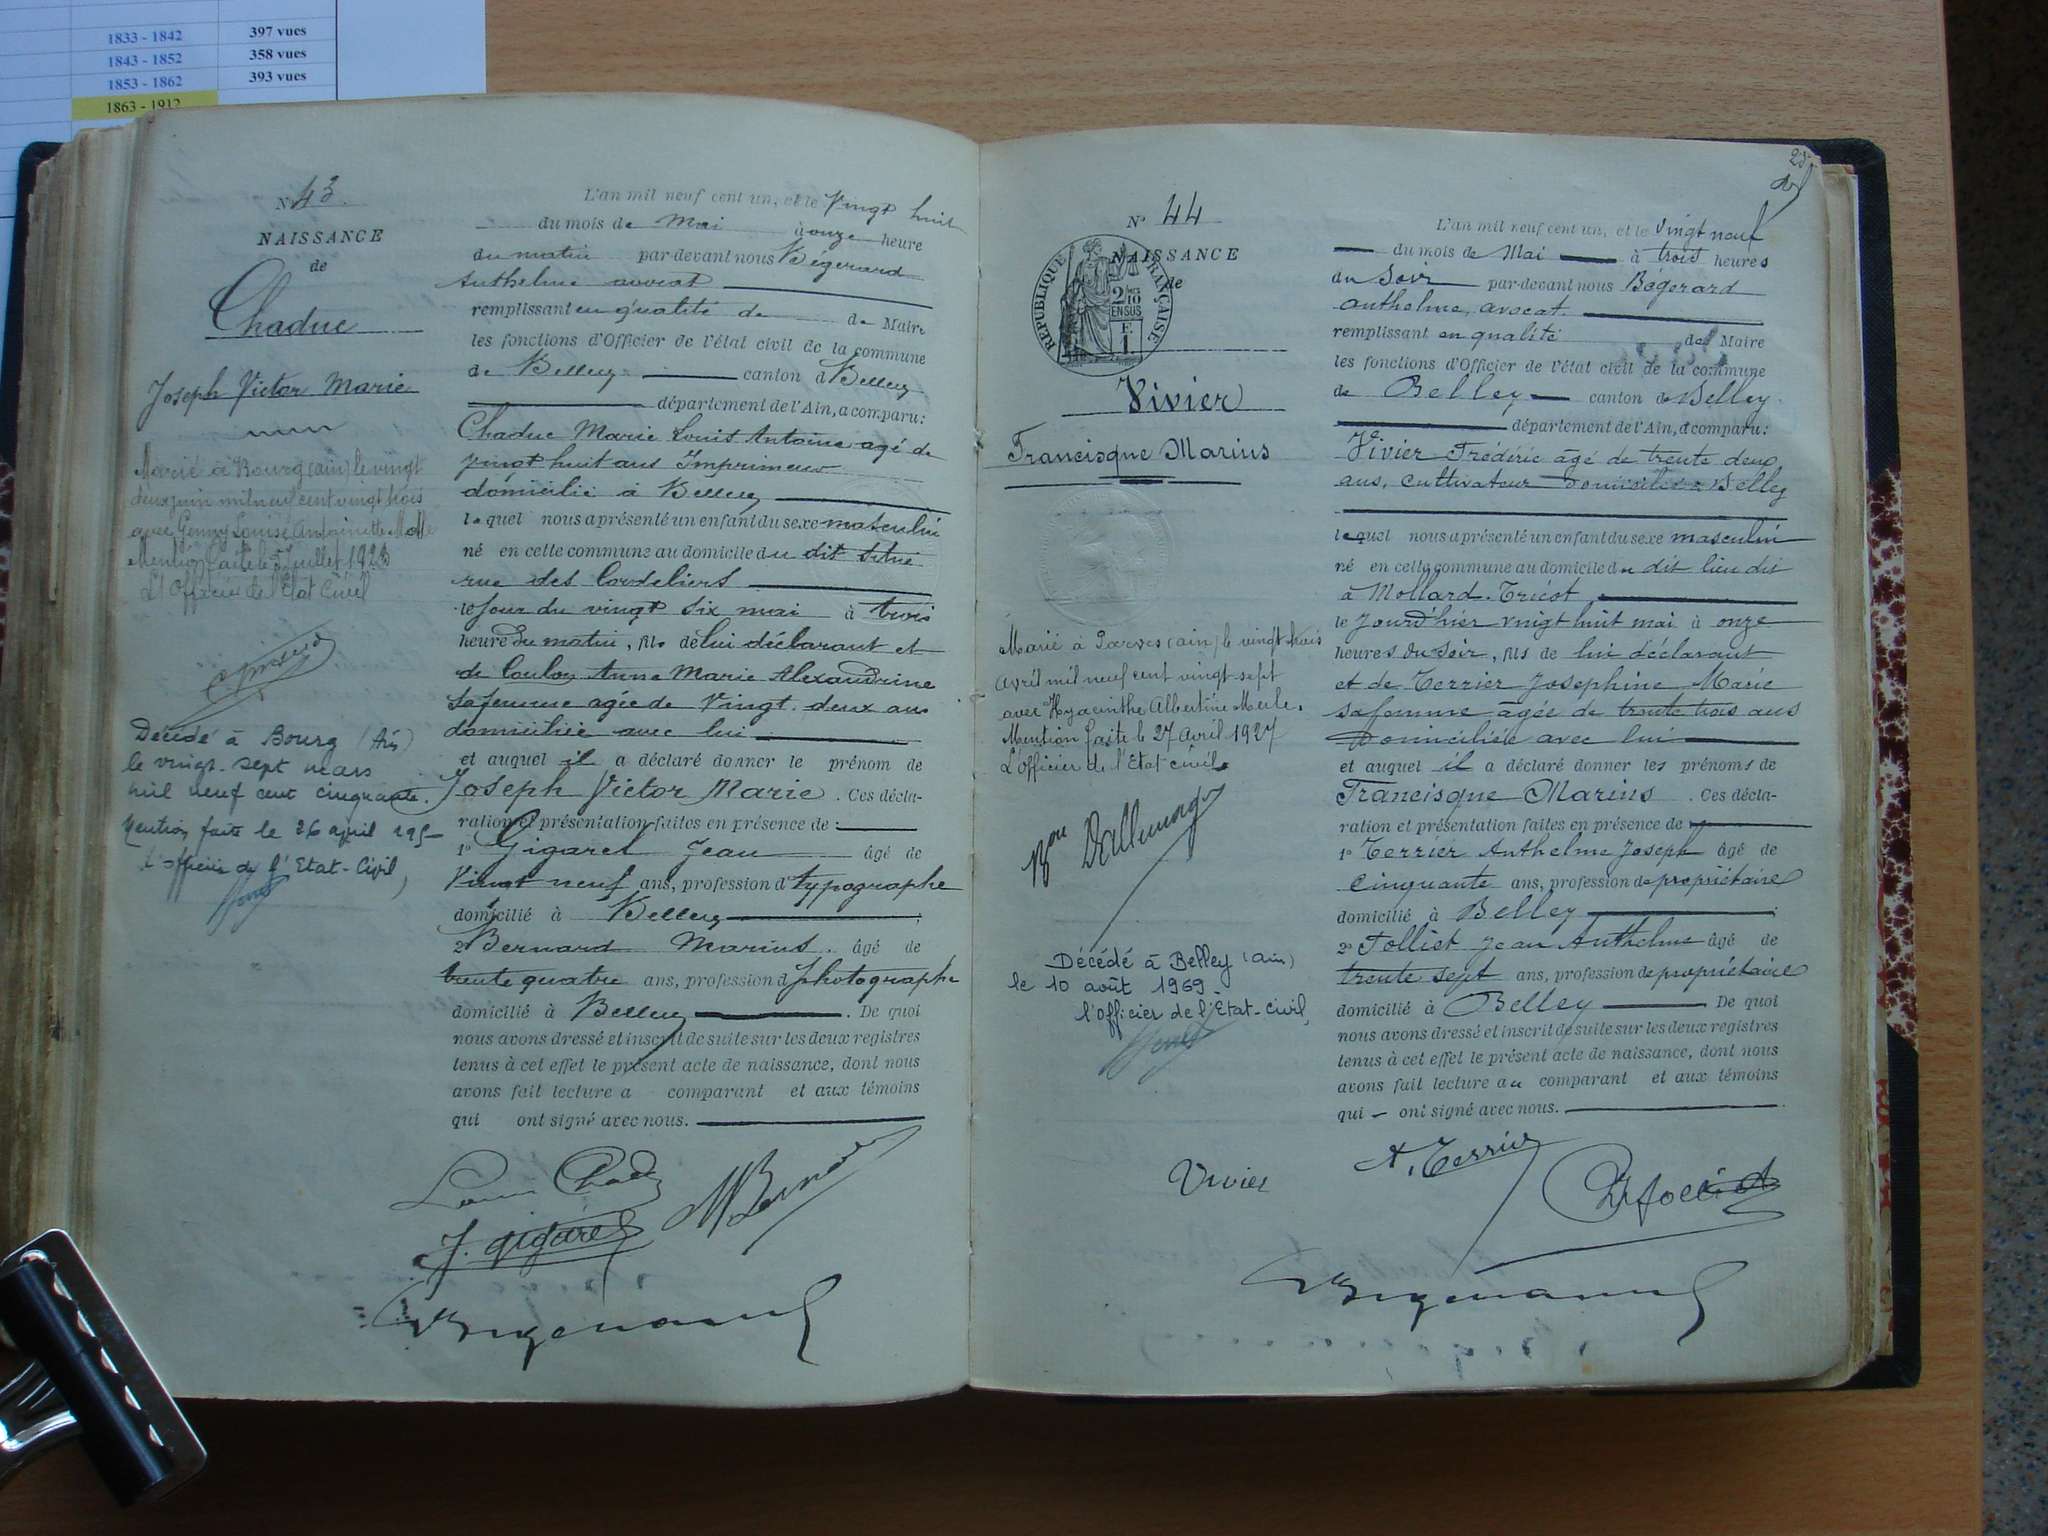 1833 - 1842 397 vues
1843 - 1852 358 vues
1853 - 1862 393 vues
1863 - 1912
N° 43
NAISSANCE
de
Chaduc
Joseph Victor Marie
Marié à Bourg (ain) le vingt
deux juin mil neuf cent vingt trois
avec Genny Louise Antoinette
Mention faite le 5 Juillet 1923
L'Officier de l'Etat Civil
Décédé à Bourg (Ain)
le vingt-sept mars
mil neuf cent cinquante.
Mention faite le 26 april 195
L'officier de l'Etat-Civil,
L'an mil neuf cent un, et le Vingt huit
du mois de Mai à onze heure
du matin par devant nous Bégerard
Anthelme avocat
remplissant en qualité de de Maire
les fonctions d'Officier de l'état civil de la commune
de Belley canton d Belley
département de l'Ain, a comparu:
Chaduc Marie Louis Antoine agé de
vingt huit ans Imprimeur
domicilié à Belley
lequel nous a présenté un enfant du sexe masculin
né en cette commune au domicile du dit situé
rue des Cordeliers
le jour du vingt six mai à trois
heure du matin, fils de lui déclarant et
de Coulon Anna Marie Alexandrine
sa femme agée de Vingt-deux ans
domiciliée avec lui
et auquel il a déclaré donner le prénom de
Joseph Victor Marie. Ces décla-
ration et présentation faites en présence de:
1° Gigaret Jean âgé de
Vingt neuf ans, profession d typographe
domicilié à Belley
2° Bernard Marius. âgé de
trente quatre ans, profession d photographe
domicilié à Belley. De quoi
nous avons dressé et inscrit de suite sur les deux registres
tenus à cet effet le présent acte de naissance, dont nous
avons fait lecture a comparant et aux témoins
qui ont signé avec nous.
Louis Chaduc
M Bernard
J. Gigaret
Bégerard
N° 44
NAISSANCE
de
RÉPUBLIQUE FRANÇAISE
2/10
EN SUS
F.
1
Vivier
Francisque Marius
Marié à Parves (ain) le vingt trois
avril mil neuf cent vingt sept
avec Hyacinthe Albertine Merle.
Mention faite le 27 avril 1927
L'officier de l'Etat civil.
Décédé à Belley (ain)
le 10 août 1969.
l'officier de l'Etat-civil,
L'an mil neuf cent un, et le vingt neuf
du mois de Mai à trois heures
du soir par-devant nous Bégerard
anthelme, avocat
remplissant en qualité de Maire
les fonctions d'Officier de l'état civil de la commune
de Belley canton de Belley
département de l'Ain, a comparu:
Vivier Frédéric âgé de trente deux
ans, cultivateur domicilié à Belley
lequel nous a présenté un enfant du sexe masculin
né en cette commune au domicile du dit lieu dit
à Mollard-Tricot,
le jourd'hier vingt huit mai à onze
heures du soir, fils de lui déclarant
et de Terrier Josephine Marie
sa femme âgée de trente trois ans
Domiciliée avec lui
et auquel il a déclaré donner les prénoms de
Francisque Marius. Ces décla-
ration et présentation faites en présence de
1° Terrier Anthelme Joseph âgé de
cinquante ans, profession de propriétaire
domicilié à Belley
2° Folliet Jean Anthelme âgé de
trente sept ans, profession de propriétaire
domicilié à Belley De quoi
nous avons dressé et inscrit de suite sur les deux registres
tenus à cet effet le présent acte de naissance, dont nous
avons fait lecture au comparant et aux témoins
qui ont signé avec nous.
Vivier
A. Terrier
Folliet
Bégerard